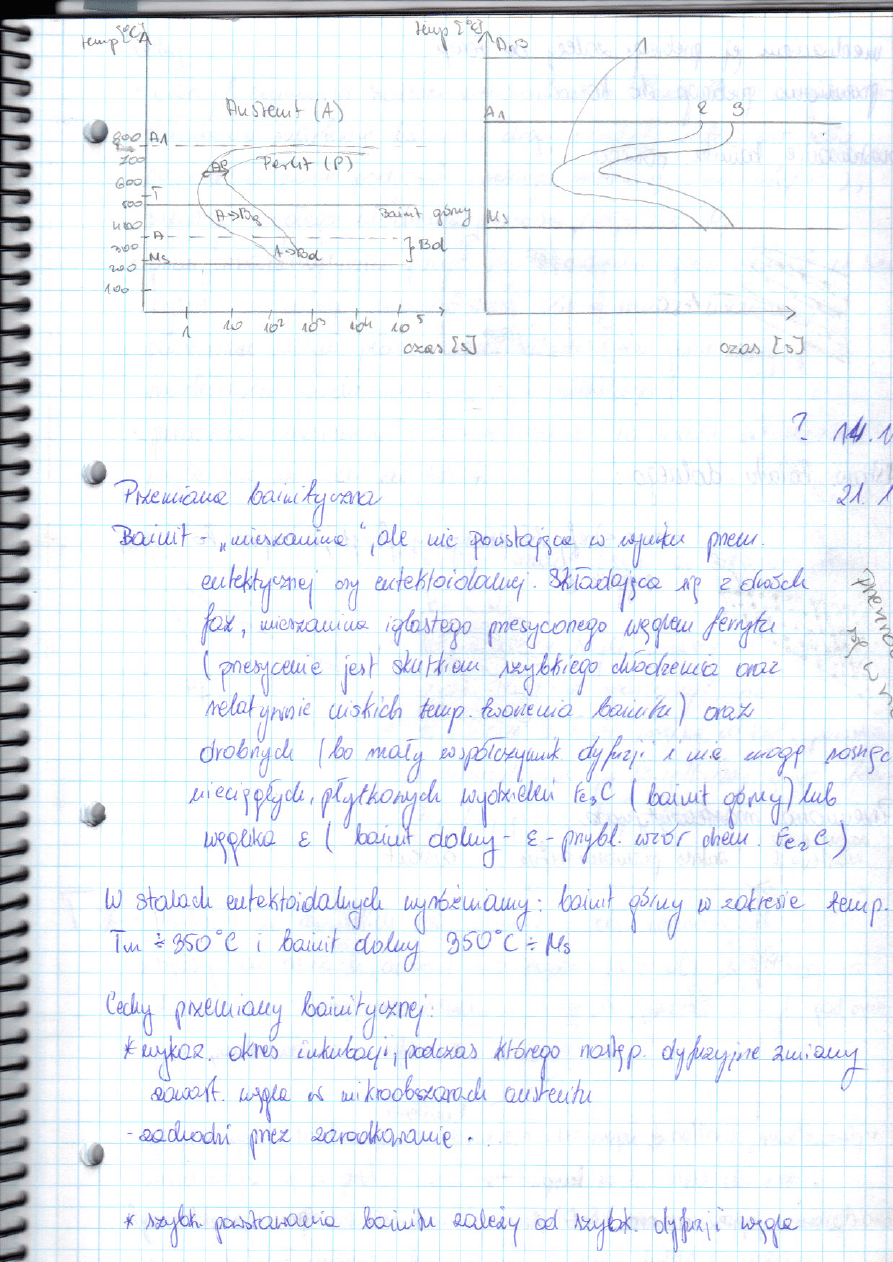 temp [°C]
Austenit (A)
800 A1
700 Perlit (P)
600
T
500
A→Bg Bainit górny
400
A
300 A→Bd Bd
Ms
200
100
1 10 10² 10³ 10⁴ 10⁵
czas [s]
temp [°C]
Ar3 1
A1 2 3
Ms
czas [s]
? 14.1
21.1
Przemiana bainityczna
Bainit - „mieszanina", ale nie powstająca w wyniku przem.
eutektycznej czy eutektoidalnej. Składająca się z dwóch
faz, mieszanina iglastego przesyconego węglem ferrytu
(przesycenie jest skutkiem szybkiego chłodzenia oraz
relatywnie niskich temp. tworzenia bainitu) oraz
drobnych (bo mały współczynnik dyfuzji i nie mogą rosnąć
nieciągłych, płytkowych wydzieleń Fe₃C (bainit górny) lub
węglika ε (bainit dolny - ε - przybl. wzór chem. Fe₂C)
W stalach eutektoidalnych wyróżniamy: bainit górny w zakresie temp.
Tm ÷ 350°C i bainit dolny 350°C ÷ Ms
Cechy przemiany bainitycznej:
* wykaz. okres inkubacji, podczas którego następ. dyfuzyjne zmiany
zawart. węgla w mikroobszarach austenitu
- zachodzi przez zarodkowanie.
* szybk. powstawania bainitu zależy od szybk. dyfuzji węgla